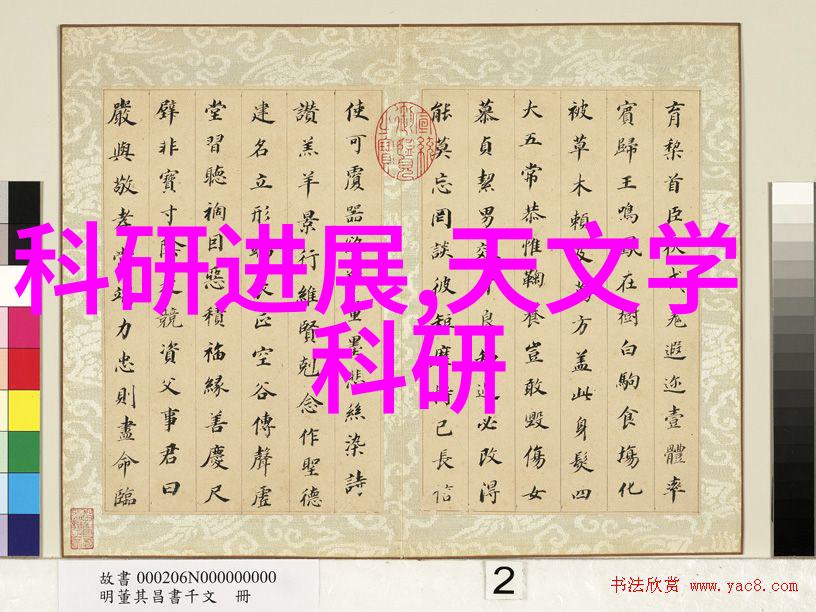 科研进展,天文学
科研
育棃首臣伏戎羌遐迩壹體率
賓歸王鳴鳳在樹白駒食場化
被草木賴及萬方蓋此身髮四
大五常恭惟鞠養豈敢毀傷女
慕貞絜男效才良知過必改得
能莫忘罔談彼短靡恃己長信
使可覆器欲難量墨悲絲染詩
讚羔羊景行維賢剋念作聖德
建名立形端表正空谷傳聲虛
堂習聽禍因惡積福緣善慶尺
璧非寶寸陰是競資父事君曰
嚴與敬孝當竭力忠則盡命臨
宣統御覽之寶
故書 000206N000000000
明董其昌書千文 冊
2
书法欣赏 www.yac8.com